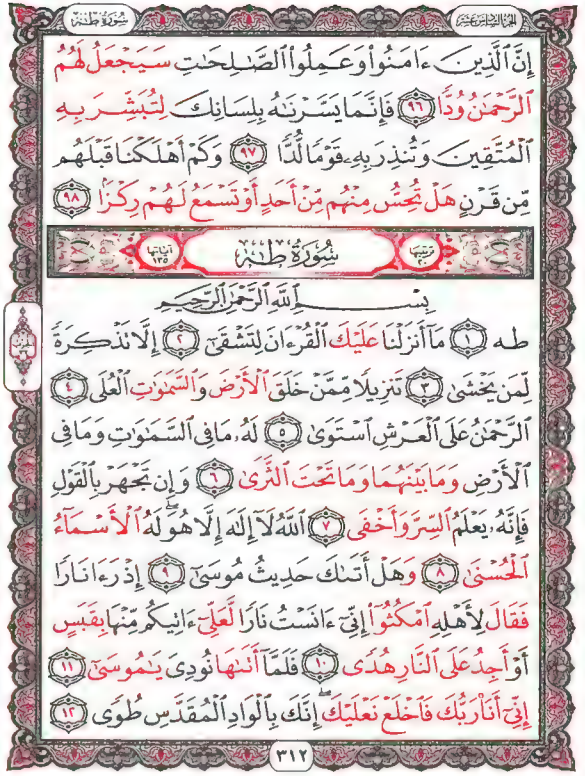 سُورَةُ طه
الجزء السادس عشر
إِنَّ ٱلَّذِينَ ءَامَنُواْ وَعَمِلُواْ ٱلصَّٰلِحَٰتِ سَيَجْعَلُ لَهُمُ
ٱلرَّحْمَٰنُ وُدًّا ٩٦ فَإِنَّمَا يَسَّرْنَٰهُ بِلِسَانِكَ لِتُبَشِّرَ بِهِ
ٱلْمُتَّقِينَ وَتُنذِرَ بِهِۦ قَوْمًا لُّدًّا ٩٧ وَكَمْ أَهْلَكْنَا قَبْلَهُم
مِّن قَرْنٍ هَلْ تُحِسُّ مِنْهُم مِّنْ أَحَدٍ أَوْ تَسْمَعُ لَهُمْ رِكْزًۢا ٩٨
ترتيبها ٢٠ سُورَةُ طه آياتها ١٣٥
بِسْمِ ٱللَّهِ ٱلرَّحْمَٰنِ ٱلرَّحِيمِ
طه ١ مَآ أَنزَلْنَا عَلَيْكَ ٱلْقُرْءَانَ لِتَشْقَىٰٓ ٢ إِلَّا تَذْكِرَةً
لِّمَن يَخْشَىٰ ٣ تَنزِيلًا مِّمَّنْ خَلَقَ ٱلْأَرْضَ وَٱلسَّمَٰوَٰتِ ٱلْعُلَى ٤
ٱلرَّحْمَٰنُ عَلَى ٱلْعَرْشِ ٱسْتَوَىٰ ٥ لَهُۥ مَا فِى ٱلسَّمَٰوَٰتِ وَمَا فِى
ٱلْأَرْضِ وَمَا بَيْنَهُمَا وَمَا تَحْتَ ٱلثَّرَىٰ ٦ وَإِن تَجْهَرْ بِٱلْقَوْلِ
فَإِنَّهُۥ يَعْلَمُ ٱلسِّرَّ وَأَخْفَى ٧ ٱللَّهُ لَآ إِلَٰهَ إِلَّا هُوَۖ لَهُ ٱلْأَسْمَآءُ
ٱلْحُسْنَىٰ ٨ وَهَلْ أَتَىٰكَ حَدِيثُ مُوسَىٰٓ ٩ إِذْ رَءَا نَارًا
فَقَالَ لِأَهْلِهِ ٱمْكُثُوٓاْ إِنِّىٓ ءَانَسْتُ نَارًا لَّعَلِّىٓ ءَاتِيكُم مِّنْهَا بِقَبَسٍ
أَوْ أَجِدُ عَلَى ٱلنَّارِ هُدًى ١٠ فَلَمَّآ أَتَىٰهَا نُودِىَ يَٰمُوسَىٰٓ ١١
إِنِّىٓ أَنَا۠ رَبُّكَ فَٱخْلَعْ نَعْلَيْكَۖ إِنَّكَ بِٱلْوَادِ ٱلْمُقَدَّسِ طُوًى ١٢
٣١٢